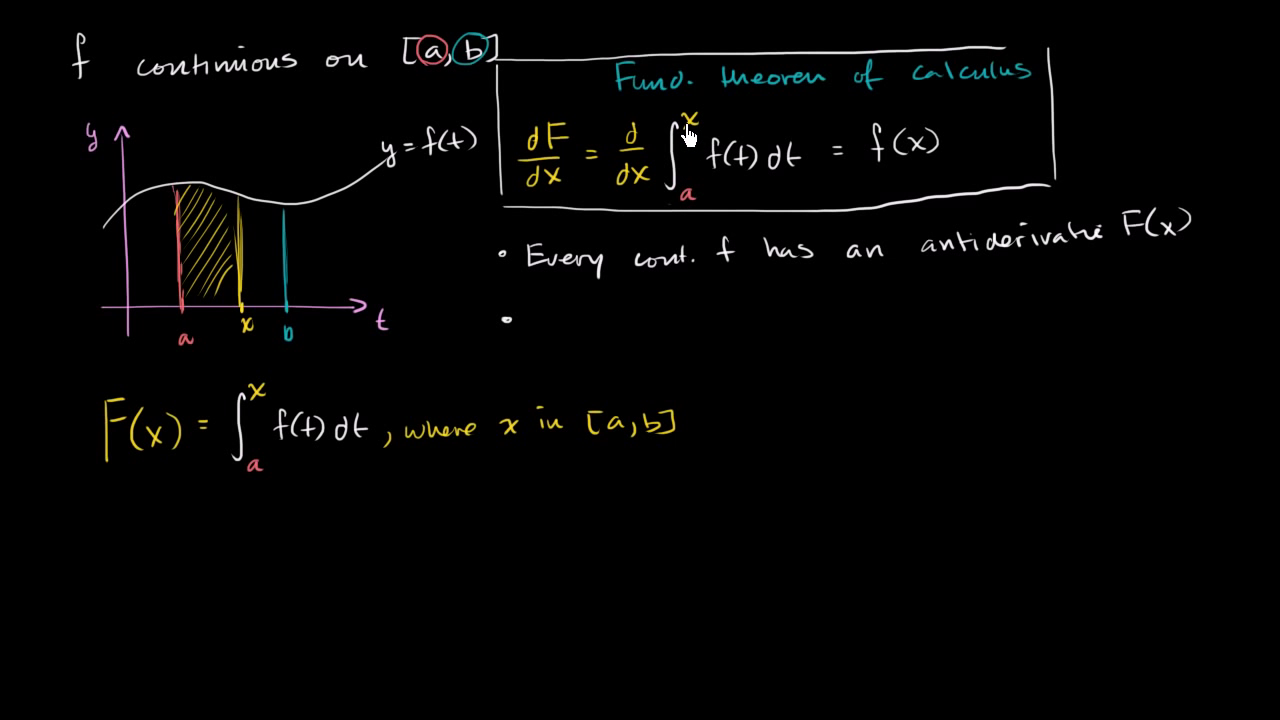 f continuous on [a, b]
Fund. theorem of calculus
dF/dx = d/dx ∫_a^x f(t) dt = f(x)
y
y = f(t)
a x b
t
• Every cont. f has an antiderivative F(x)
•
F(x) = ∫_a^x f(t) dt, where x in [a, b]